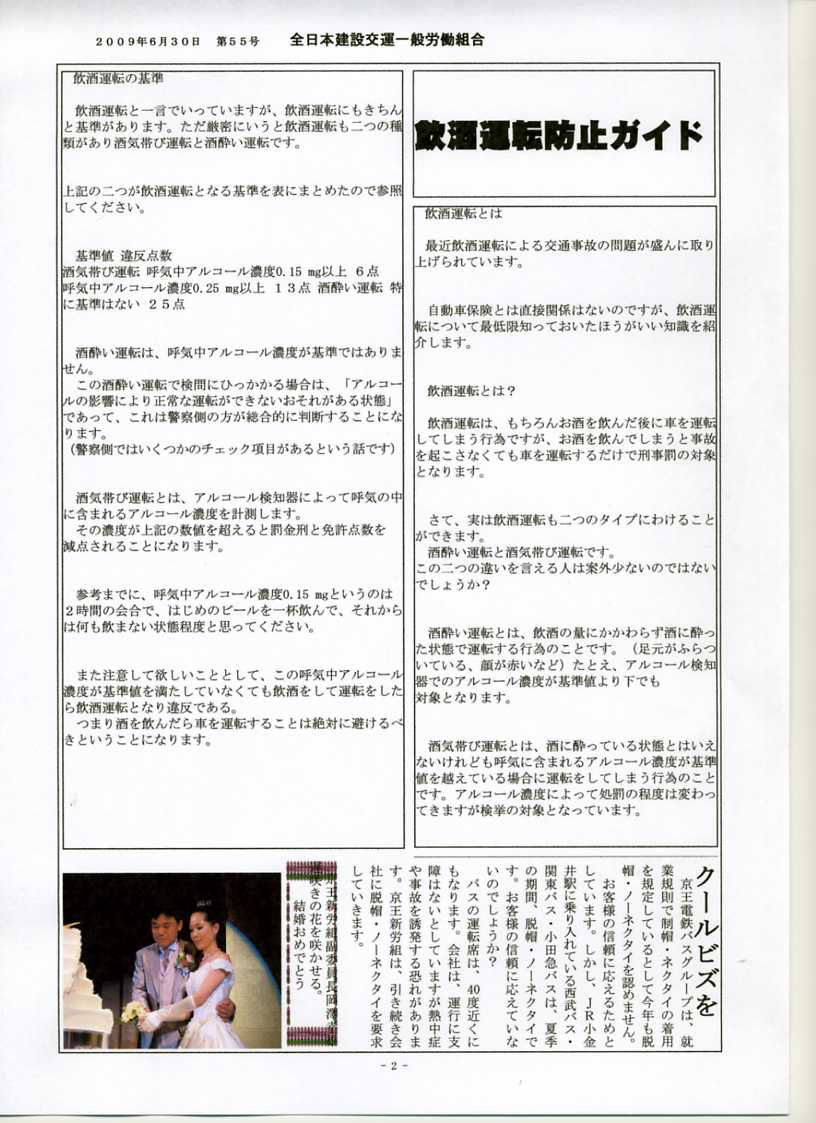 2009年6月30日　第55号　全日本建設交運一般労働組合
飲酒運転防止ガイド
飲酒運転とは
最近飲酒運転による交通事故の問題が盛んに取り
上げられています。
自動車保険とは直接関係はないのですが、飲酒運
転について最低限知っておいたほうがいい知識を紹
介します。
飲酒運転とは？
飲酒運転は、もちろんお酒を飲んだ後に車を運転
してしまう行為ですが、お酒を飲んでしまうと事故
を起こさなくても車を運転するだけで刑事罰の対象
となります。
さて、実は飲酒運転も二つのタイプにわけること
ができます。
酒酔い運転と酒気帯び運転です。
この二つの違いを言える人は案外少ないのではない
でしょうか？
酒酔い運転とは、飲酒の量にかかわらず酒に酔っ
た状態で運転する行為のことです。（足元がふらつ
いている、顔が赤いなど）たとえ、アルコール検知
器でのアルコール濃度が基準値より下でも
対象となります。
酒気帯び運転とは、酒に酔っている状態とはいえ
ないけれども呼気に含まれるアルコール濃度が基準
値を越えている場合に運転をしてしまう行為のこと
です。アルコール濃度によって処罰の程度は変わっ
てきますが検挙の対象となっています。
飲酒運転の基準
飲酒運転と一言でいっていますが、飲酒運転にもきちん
と基準があります。ただ厳密にいうと飲酒運転も二つの種
類があり酒気帯び運転と酒酔い運転です。
上記の二つが飲酒運転となる基準を表にまとめたので参照
してください。
基準値 違反点数
酒気帯び運転 呼気中アルコール濃度0.15 mg以上 6点
呼気中アルコール濃度0.25 mg以上 13点 酒酔い運転 特
に基準はない 25点
酒酔い運転は、呼気中アルコール濃度が基準ではありま
せん。
この酒酔い運転で検問にひっかかる場合は、「アルコー
ルの影響により正常な運転ができないおそれがある状態」
であって、これは警察側の方が総合的に判断することにな
ります。
（警察側ではいくつかのチェック項目があるという話です）
酒気帯び運転とは、アルコール検知器によって呼気の中
に含まれるアルコール濃度を計測します。
その濃度が上記の数値を超えると罰金刑と免許点数を
減点されることになります。
参考までに、呼気中アルコール濃度0.15 mgというのは
2時間の会合で、はじめのビールを一杯飲んで、それから
は何も飲まない状態程度と思ってください。
また注意して欲しいこととして、この呼気中アルコール
濃度が基準値を満たしていなくても飲酒をして運転をした
ら飲酒運転となり違反である。
つまり酒を飲んだら車を運転することは絶対に避けるべ
きということになります。
クールビズを
京王電鉄バスグループは、就
業規則で制帽・ネクタイの着用
を規定しているとして今年も脱
帽・ノーネクタイを認めません。
お客様の信頼に応えるためと
しています。しかし、ＪＲ小金
井駅に乗り入れている西武バス・
関東バス・小田急バスは、夏季
の期間、脱帽・ノーネクタイで
す。お客様の信頼に応えていな
いのでしょうか？
バスの運転席は、40度近くに
もなります。会社は、運行に支
障はないとしていますが熱中症
や事故を誘発する恐れがありま
す。京王新労組は、引き続き会
社に脱帽・ノーネクタイを要求
していきます。
京王新労組副委員長岡澤
咲きの花を咲かせる。
結婚おめでとう
- 2 -